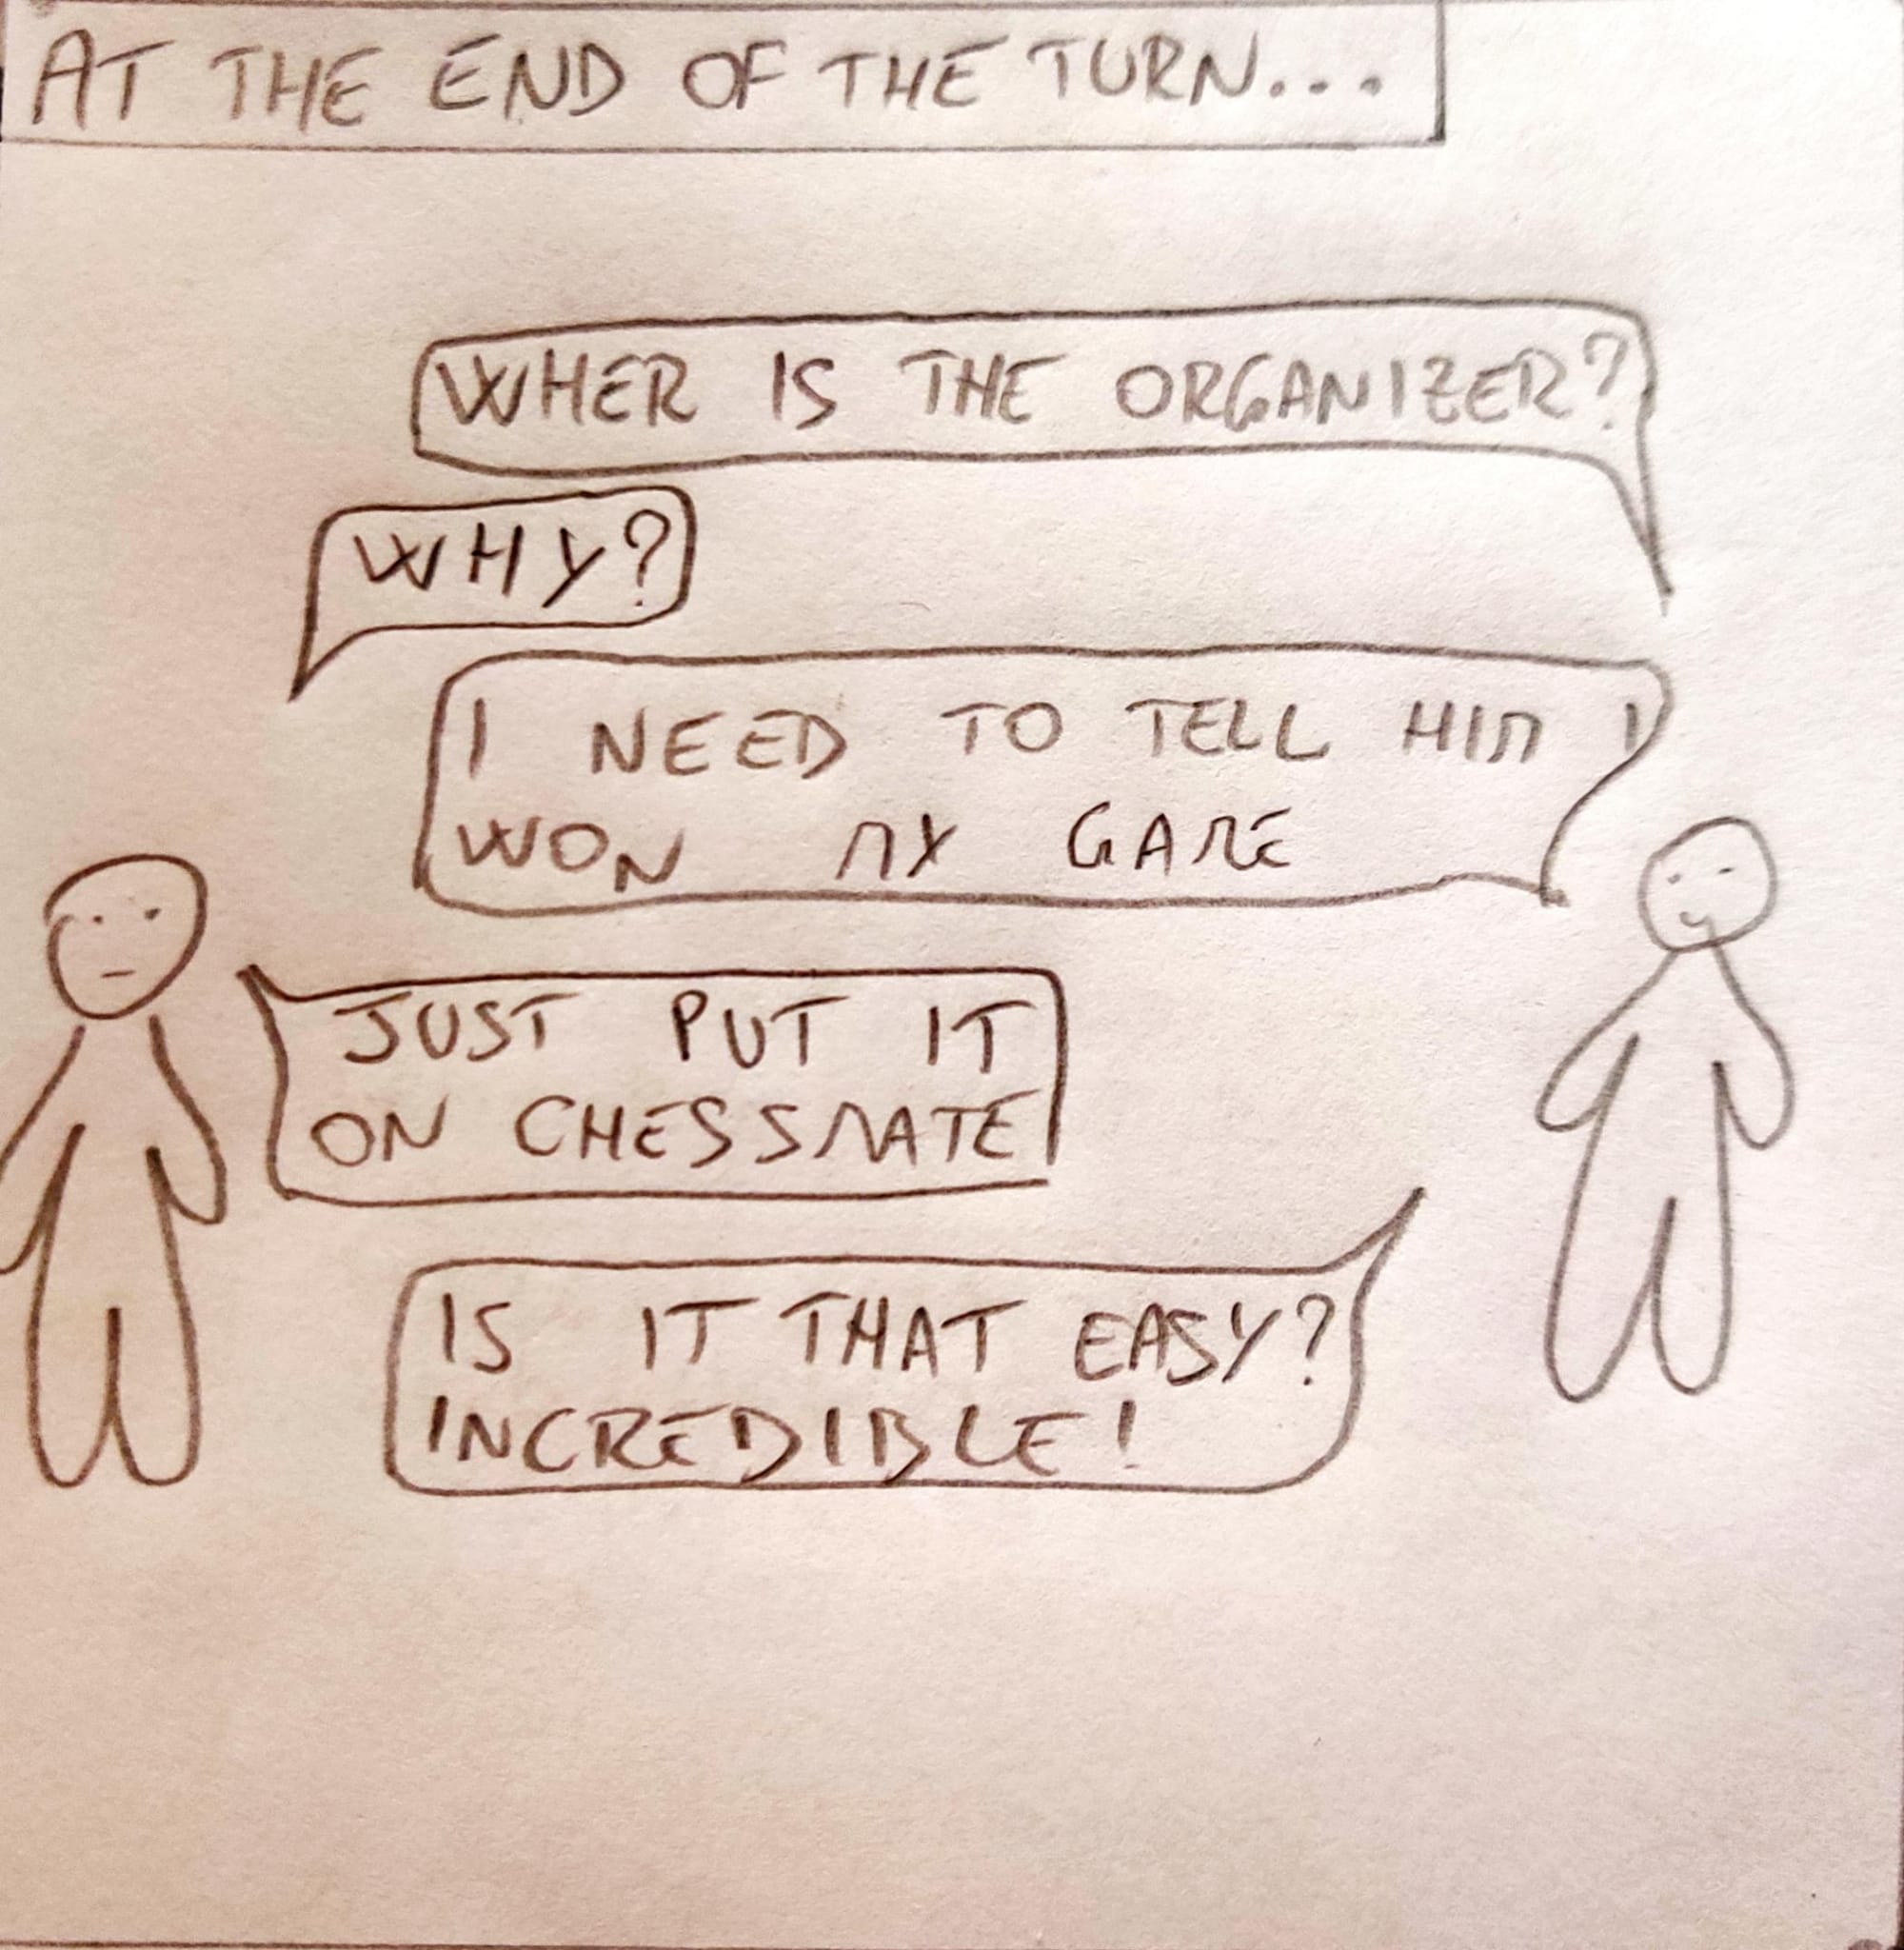 AT THE END OF THE TURN...
WHER IS THE ORGANIZER?
WHY?
I NEED TO TELL HIM I
WON MY GAME
JUST PUT IT
ON CHESSMATE
IS IT THAT EASY?
INCREDIBLE!